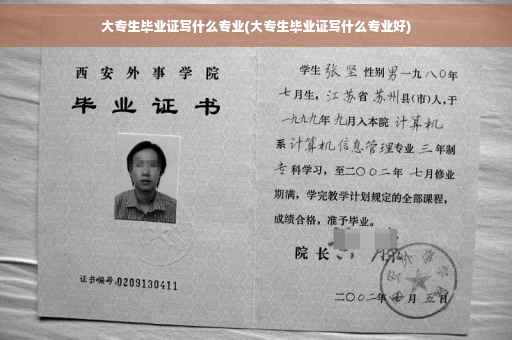 大专生毕业证写什么专业(大专生毕业证写什么专业好)
西安外事学院
毕业证书
证书编号:0209130411
学生 张坚 性别 男 一九八〇年
七月生,江苏省 苏州县(市)人,于
一九九九年 九月入本院 计算机
系 计算机信息管理专业 三年制
专科学习,至二〇〇二年 七月修业
期满,学完教学计划规定的全部课程,
成绩合格,准予毕业。
院长
二〇〇二年 月 五日